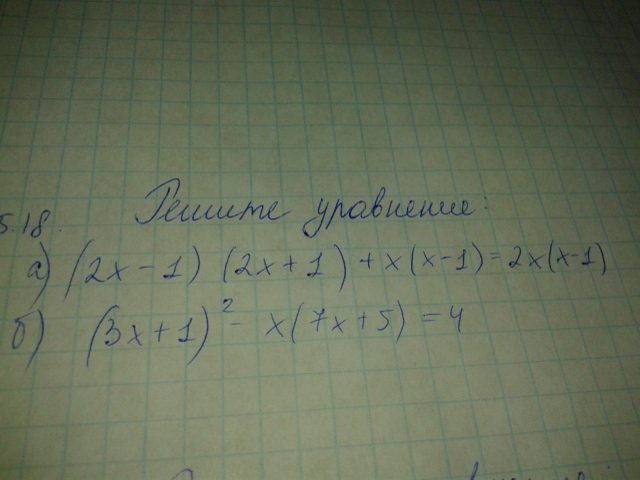 5.18. Решите уравнение:
а) (2x-1) (2x+1) + x(x-1) = 2x(x-1)
б) (3x+1)² - x(7x+5) = 4